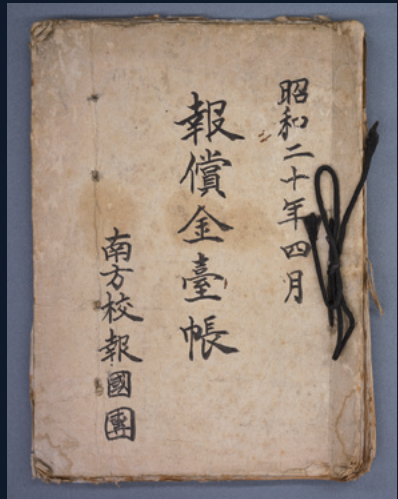 昭和二十年四月
報償金臺帳
南方校報國團